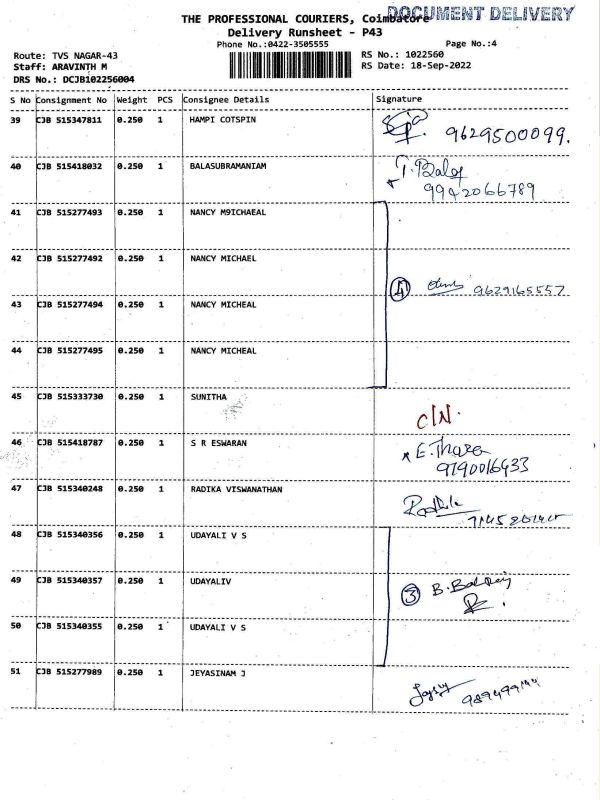 THE PROFESSIONAL COURIERS, Coimbatore
DOCUMENT DELIVERY
Delivery Runsheet - P43
Phone No.:0422-3505555 Page No.:4
Route: TVS NAGAR-43 RS No.: 1022560
Staff: ARAVINTH M RS Date: 18-Sep-2022
DRS No.: DCJB102256004
S No Consignment No Weight PCS Consignee Details Signature
39 CJB 515347811 0.250 1 HAMPI COTSPIN 9629500099.
40 CJB 515418032 0.250 1 BALASUBRAMANIAM
9942066789
41 CJB 515277493 0.250 1 NANCY M9ICHAEAL
42 CJB 515277492 0.250 1 NANCY MICHAEL
4 9629165557
43 CJB 515277494 0.250 1 NANCY MICHEAL
44 CJB 515277495 0.250 1 NANCY MICHEAL
45 CJB 515333730 0.250 1 SUNITHA
C/N.
46 CJB 515418787 0.250 1 S R ESWARAN
9790016433
47 CJB 515340248 0.250 1 RADIKA VISWANATHAN
48 CJB 515340356 0.250 1 UDAYALI V S
49 CJB 515340357 0.250 1 UDAYALIV 3
50 CJB 515340355 0.250 1 UDAYALI V S
51 CJB 515277989 0.250 1 JEYASINAM J